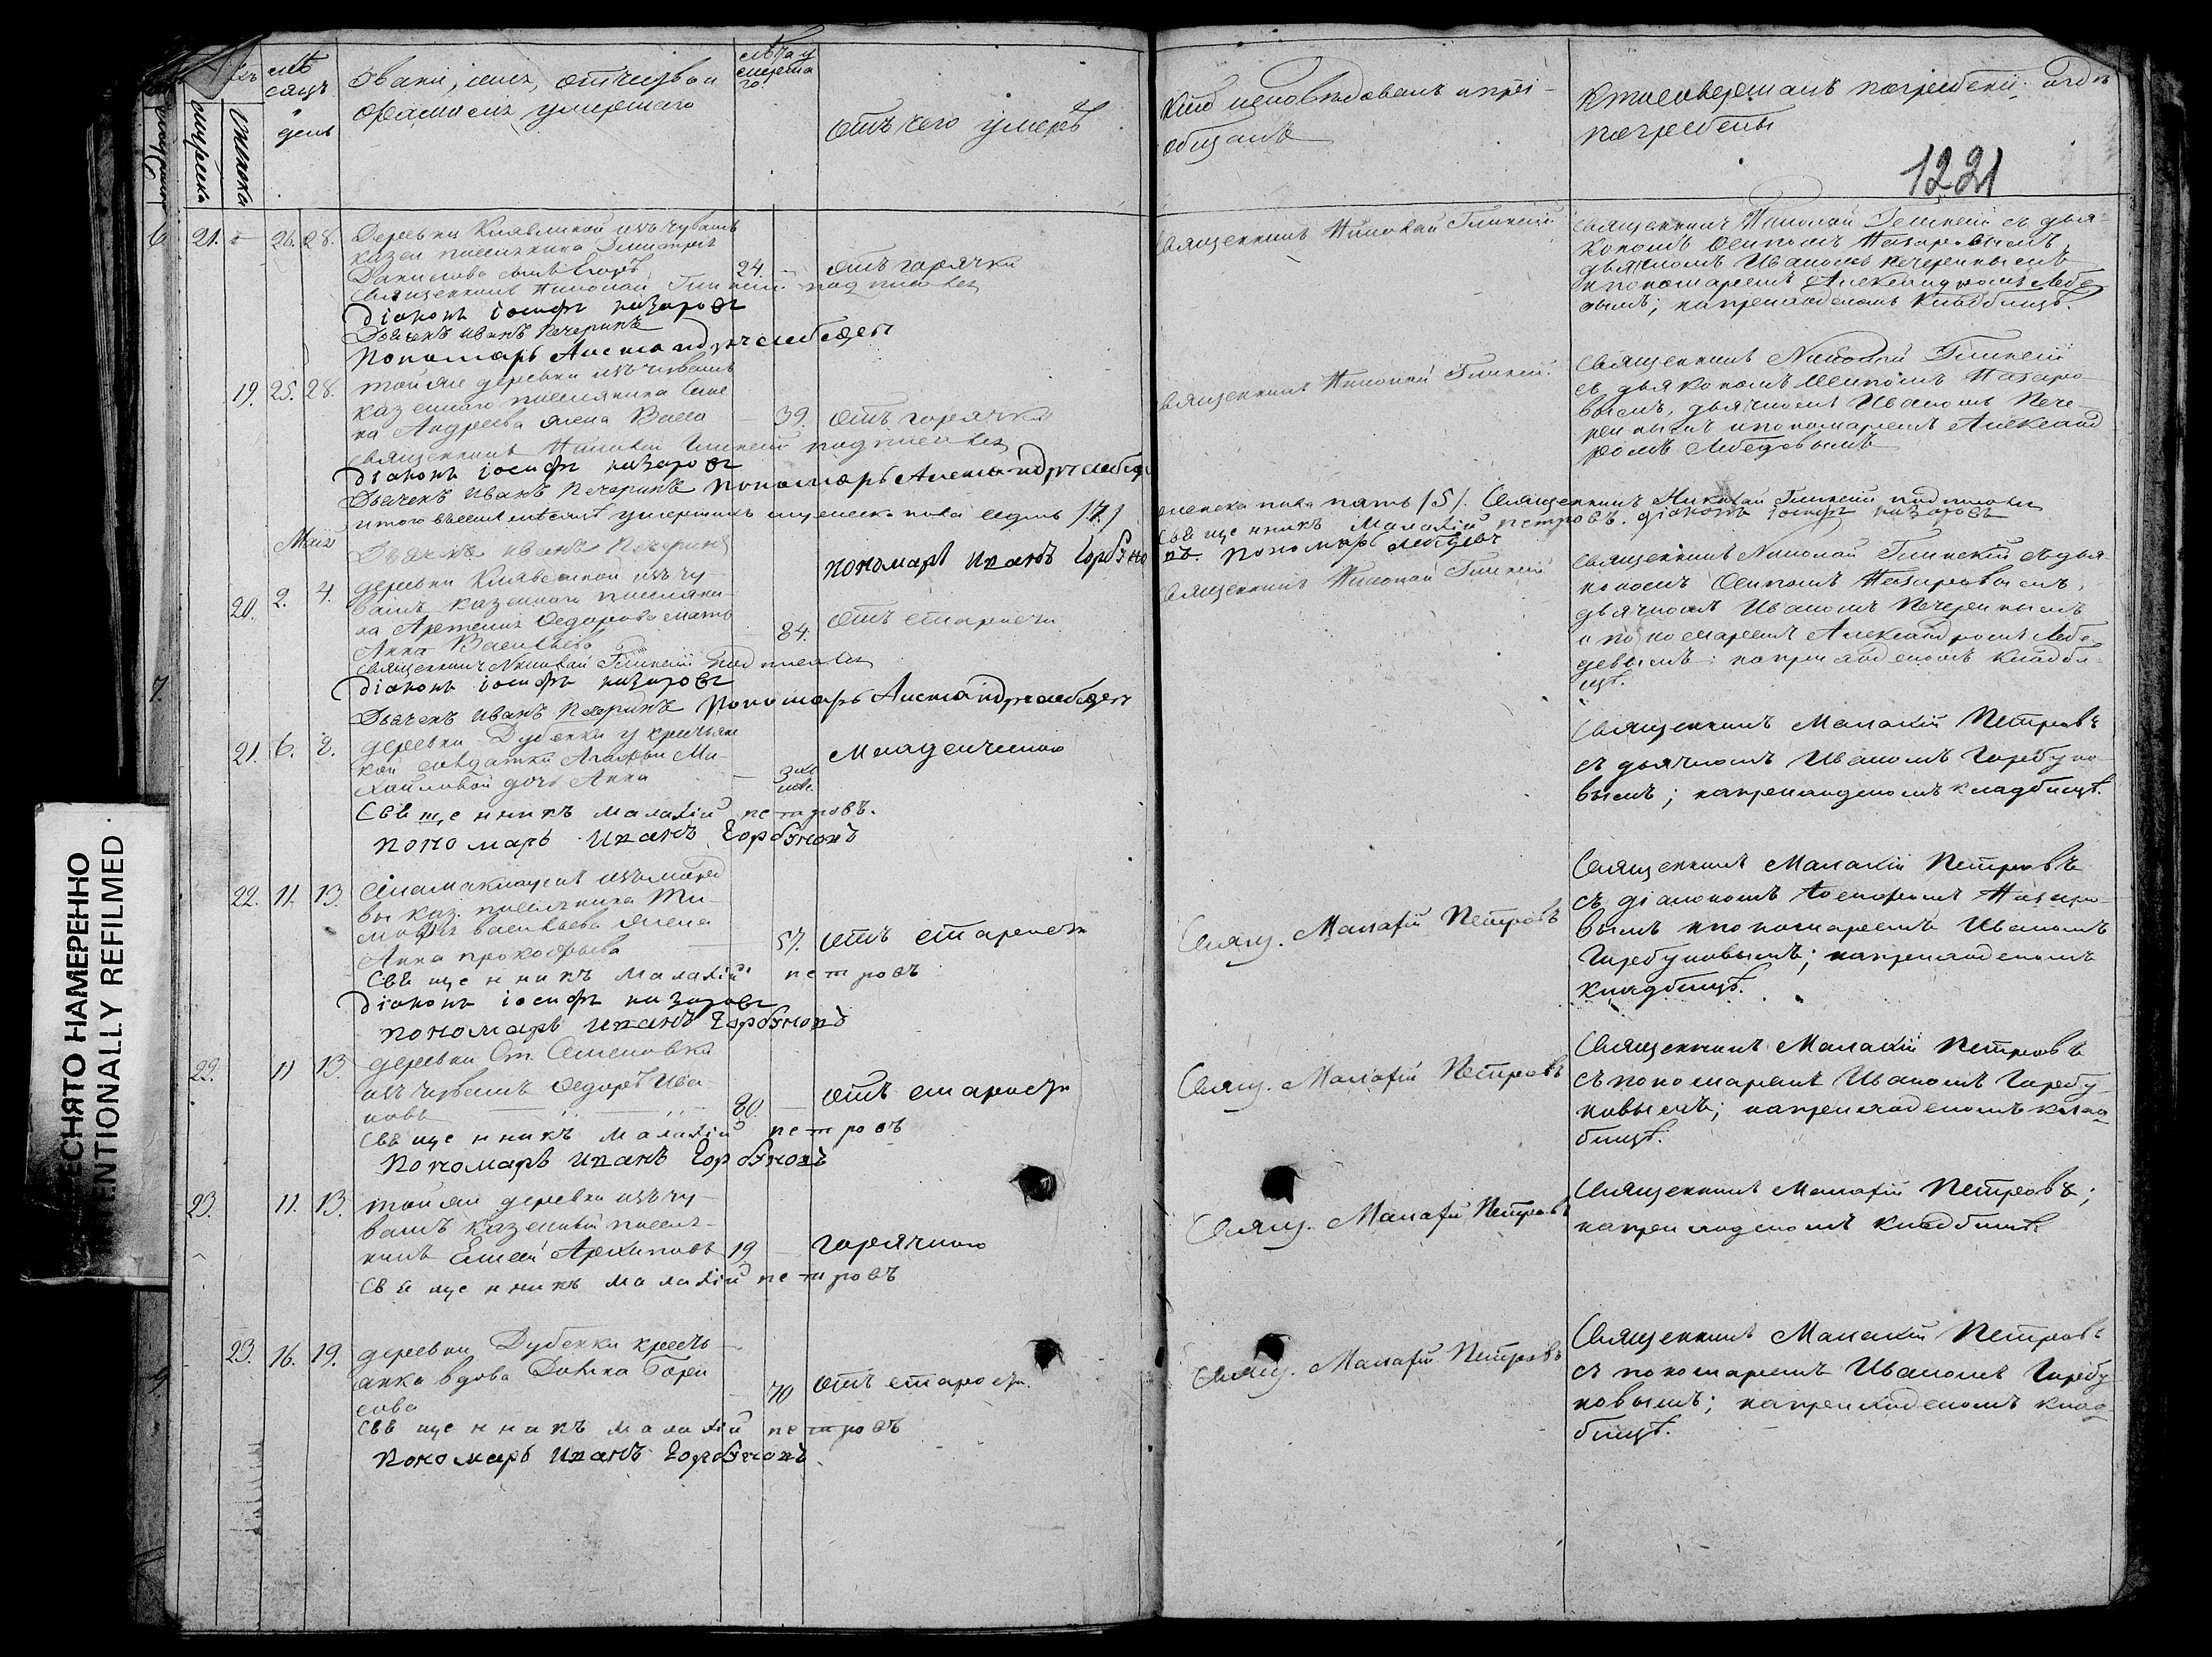 мѣ
сяцъ
и
день
мужеска
женска
Званіе, имя, отчество и
фамилія умершаго
лѣта у
мерша
го.
отъ чего умеръ
Кто исповѣдовалъ и прі-
общалъ
Кто совершалъ погребеніе и гдѣ
погребены
1221
6 21. 26. 28. Деревни Клявлиной изъ чувашъ
казен поселянина Дмитрія
Данилова сынъ Егоръ 24. отъ горячки
Священникъ Николай Глинкій подписался
Діаконъ Іосифъ назаровъ
Дьячекъ Иванъ Печеринъ
Пономарь Александръ лебедевъ
Священникъ Николай Глинкій
Священникъ Николай Глинкій съ дья
кономъ Осипомъ Назаровымъ,
дьячкомъ Иваномъ Печеринымъ
и пономаремъ Александромъ Лебе
вымъ; на приходскомъ кладбищѣ.
19. 25. 28. той же деревни изъ чувашъ
казеннаго поселянина Семе
на Андреева жена Васса 39. отъ горячки
Священникъ Николай Глинкій подписался
Діаконъ Іосифъ назаровъ
Дьячекъ Иванъ Печеринъ Пономарь Александръ лебеде
Священникъ Николай Глинкій.
Священникъ Николай Глинкій
съ дьякономъ Осипомъ Назаро
вымъ, дьячкомъ Иваномъ Пече
ринымъ и пономаремъ Александ
ромъ Лебедевымъ
Итого въ семъ мѣсяцѣ умершихъ мужеска пола седмь /7/ женска пола пять /5/. Священникъ Николай Глинкій подписался
Священникъ Малахій петровъ. Діаконъ Іосифъ назаровъ
Маія
Дьячекъ Иванъ Печеринъ пономарь Иванъ Горбуно въ. Пономарь лебедевъ
7. 20. 2. 4. деревни Клявлиной изъ чу-
вашъ казеннаго поселяни-
на Артемія Ѳедорова мать
Анна Васильева 84. отъ старости
Священникъ Николай Глинкій подписался
Діаконъ Іосифъ назаровъ
Дьячекъ Иванъ Печеринъ Пономарь Александръ лебедевъ
Священникъ Николай Глинкій
Священникъ Николай Глинкій съ дья
кономъ Осипомъ Назаровымъ,
дьячкомъ Иваномъ Печеринымъ
и пономаремъ Александромъ Лебе
девымъ; на приходскомъ кладби-
щѣ.
21. 6. 8. деревни Дубенки у крестьян
кой солдатки Агафьи Ми-
хайловой дочь Анна Младенческою
Священникъ малахій петровъ.
пономарь Иванъ Горбуновъ
Священникъ Малахій Петровъ
съ дьячкомъ Иваномъ Горбуно
вымъ; на приходскомъ кладбищѣ.
22. 11. 13. изъ морд
вы каз. поселянина Ти-
моѳея Васильева жена
Анна прокофьева 57. отъ старости
Священникъ малахій петровъ
Діаконъ Іосифъ назаровъ
пономарь Иванъ Горбуновъ
Свящ. Малахій Петровъ
Священникъ Малахій Петровъ
съ діакономъ Іосифомъ Назаро-
вымъ и пономаремъ Иваномъ
Горбуновымъ; на приходскомъ
кладбищѣ.
22. 11 13. деревни Ст. Семеновки
изъ чувашъ Ѳедоръ Ива
новъ 80. отъ старости
Священникъ малахій петровъ
пономарь Иванъ Горбуновъ
Свящ. Малахій Петровъ
Священникъ Малахій Петровъ
съ пономаремъ Иваномъ Горбу
новымъ; на приходскомъ клад
бищѣ.
23. 11. 13. той же деревни изъ чу-
вашъ казенный поселя-
нинъ Елисей Архиповъ 19 горячкою
Священникъ малахій петровъ
Свящ. Малахій Петровъ
Священникъ Малахій Петровъ;
на приходскомъ кладбищѣ.
23. 16. 19. деревни Дубенки кресть-
янка вдова Домна Бори
сова 70 отъ старости.
Священникъ малахій петровъ
пономарь Иванъ Горбуновъ
Свящ. Малахій Петровъ
Священникъ Малахій Петровъ
съ пономаремъ Иваномъ Горбу
новымъ; на приходскомъ клад
бищѣ.
ЕСНЯТО НАМЕРЕННО
ENTIONALLY REFILMED